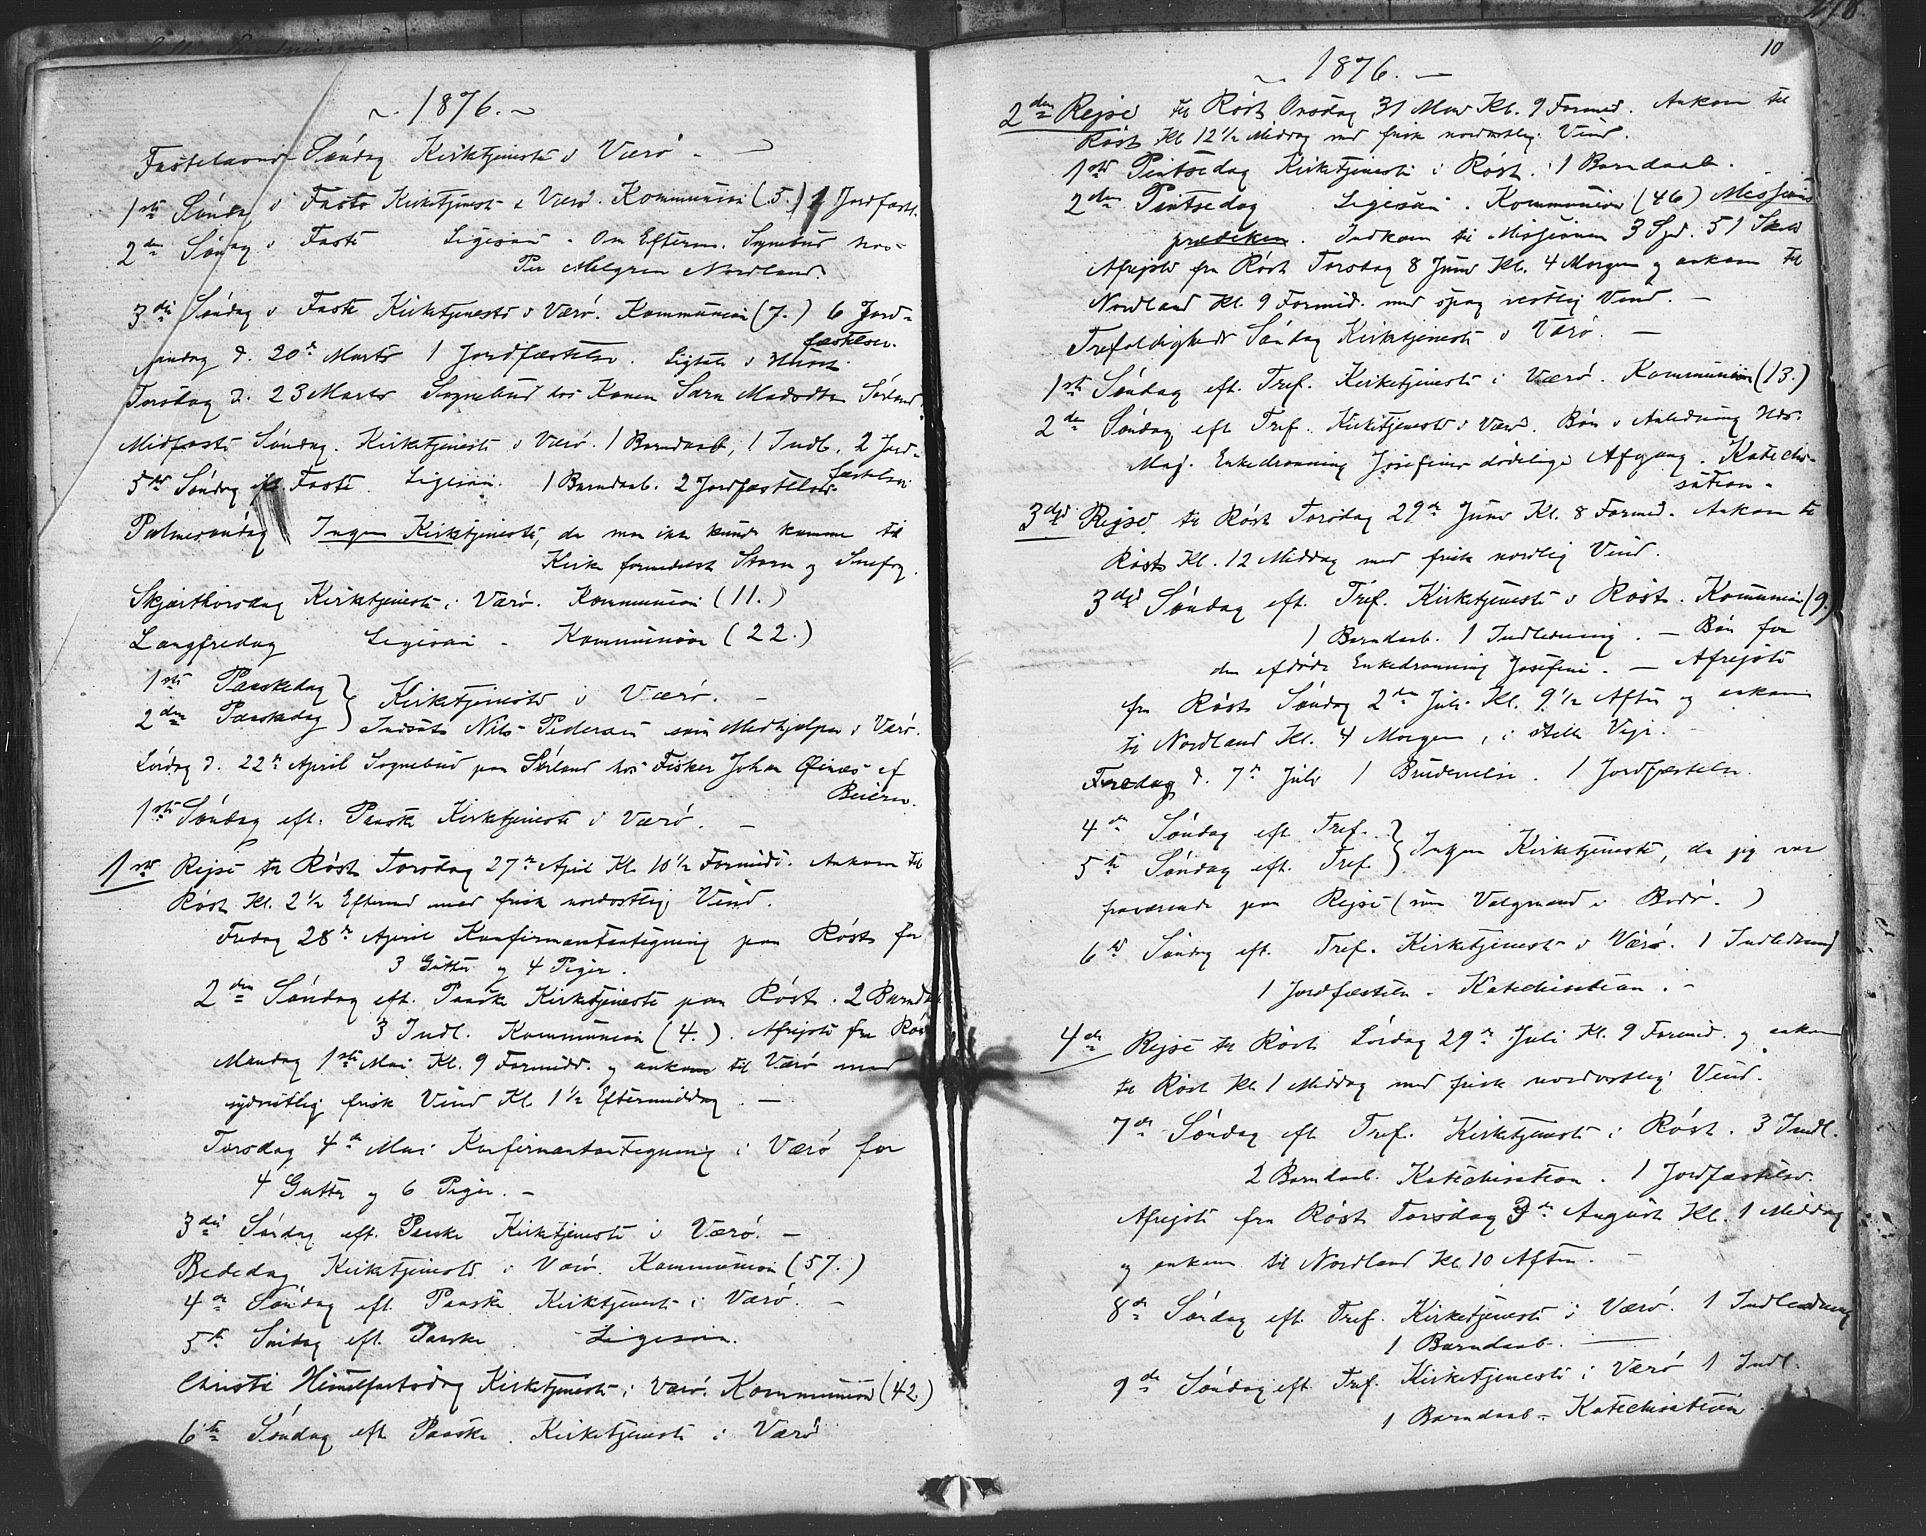 1876.
Fastelavns Søndag Kirketjeneste i Værø.
1ste Søndag i Faste Kirketjeneste i Værø. Kommunion (5.) 1 Jordfæst.
2den Søndag i Faste Ligesaa. Om Efterm. Sognebud hos
Per Nordland
3die Søndag i Faste Kirketjeneste i Værø. Kommunion (7.) 6 Jord-
fæstelser.
Mandag d. 20de Marts 1 Jordfæstelse.
Torsdag d. 23 Marts Sognebud hos Konen Sara Sørland.
Midfaste Søndag. Kirketjeneste i Værø. 1 Barndaab, 1 Indl. 2 Jord-
fæstelser
5te Søndag i Faste. Ligesaa. 1 Barndaab. 2 Jordfæstelser
Palmesøndag Ingen Kirketjeneste, da man ikke kunde komme til
Kirke formedelst Storm og Snefog.
Skjærthorsdag Kirketjeneste i Værø. Kommunion (11.)
Langfredag Ligesaa - Kommunion (22.)
1ste Paaskedag } Kirketjeneste i Værø. -
2den Paaskedag } Indsat Nils Pedersen som Medhjælper i Værø.
Lørdag d. 22de April Sognebud paa Sørland hos Fisker Johan af
Beiern.
1ste Søndag eft. Paaske Kirketjeneste i Værø. -
1ste Rejse til Røst Torsdag 27de April Kl. 10½ Formidd. Ankom til
Røst Kl. 2½ Eftermd med frisk nordostlig Vind.
Fredag 28de April Konfirmantantegning paa Røst for
3 Gutter og 4 Piger.
2den Søndag eft. Paaske Kirketjeneste paa Røst. 2 Barndaab
3 Indl. Kommunion (4.). Afrejste fra Røst
Mandag 1ste Mai Kl. 9 Formidd. og ankom til Værø med
sydvestlig frisk Vind Kl. 1½ Eftermiddag. -
Torsdag 4de Mai Konfirmantantegning i Værø for
4 Gutter og 6 Piger. -
3die Søndag eft. Paaske Kirketjeneste i Værø. -
Bededag Kirketjeneste i Værø. Kommunion (57.)
4de Søndag eft. Paaske Kirketjeneste i Værø. -
5te Søndag eft. Paaske. Ligesaa.
Christi Himmelfartsdag Kirketjeneste i Værø. Kommunion (42.)
6te Søndag eft. Paaske. Kirketjeneste i Værø
10
1876. -
2den Rejse til Røst Onsdag 31 Mai Kl. 9 Formid. Ankom til
Røst Kl 12½ Middag med frisk nordostlig Vind.
1ste Pintsedag Kirketjeneste i Røst. 1 Barndaab.
2den Pintsedag Ligesaa. Kommunion (46) Missions
prædiken. Indkom til Missionen 3 Spd. 51 Skill
Afrejste fra Røst Torsdag 8 Juni Kl. 4 Morgen og ankom til
Nordland Kl. 9 Formid. med spag vestlig Vind. -
Trefoldigheds Søndag Kirketjeneste i Værø. -
1ste Søndag eft. Tref. Kirketjeneste i Værø. Kommunion (13.)
2den Søndag eft Tref. Kirketjeneste i Værø. Bøn i Anledning Hds.
Maj. Enkedronning Josefines dødelige Afgang. Katechi-
sation.
3die Rejse til Røst Torsdag 29de Juni Kl. 8 Formid. Ankom til
Røst Kl. 12 Middag med frisk nordlig Vind.
3die Søndag eft. Tref. Kirketjeneste i Røst. Kommunion (9.)
1 Barndaab. 1 Indledning. - Bøn for
den afdøde Enkedronning Josefine. - Afrejste
fra Røst Søndag 2den Juli Kl. 9½ Aften og ankom
til Nordland Kl. 4 Morgen, i stille Vejr. -
Fredag d. 7de Juli 1 Brudevielse. 1 Jordfæstelse.
4de Søndag eft Tref. }
5te Søndag eft. Tref } Ingen Kirketjeneste, da jeg var
fraværende paa Rejse (som Valgmand i Bodø.)
6te Søndag eft. Tref. Kirketjeneste i Værø. 1 Indledning
1 Jordfæstelse. Katechisation. -
4de Rejse til Røst Lørdag 29de Juli Kl. 9 Formid. og ankom
til Røst Kl. 1 Middag med frisk nordostlig Vind.
7de Søndag eft Tref. Kirketjeneste i Røst. 3 Indl.
2 Barndaab. Katechisation. 1 Jordfæstelse.
Afrejste fra Røst Torsdag 3de August Kl. 1 Middag
og ankom til Nordland Kl. 10 Aften. -
8de Søndag eft. Tref. Kirketjeneste i Værø. 1 Indledning
1 Barndaab. -
9de Søndag eft. Tref. Kirketjeneste i Værø 1 Indl.
1 Barndaab - Katechisation